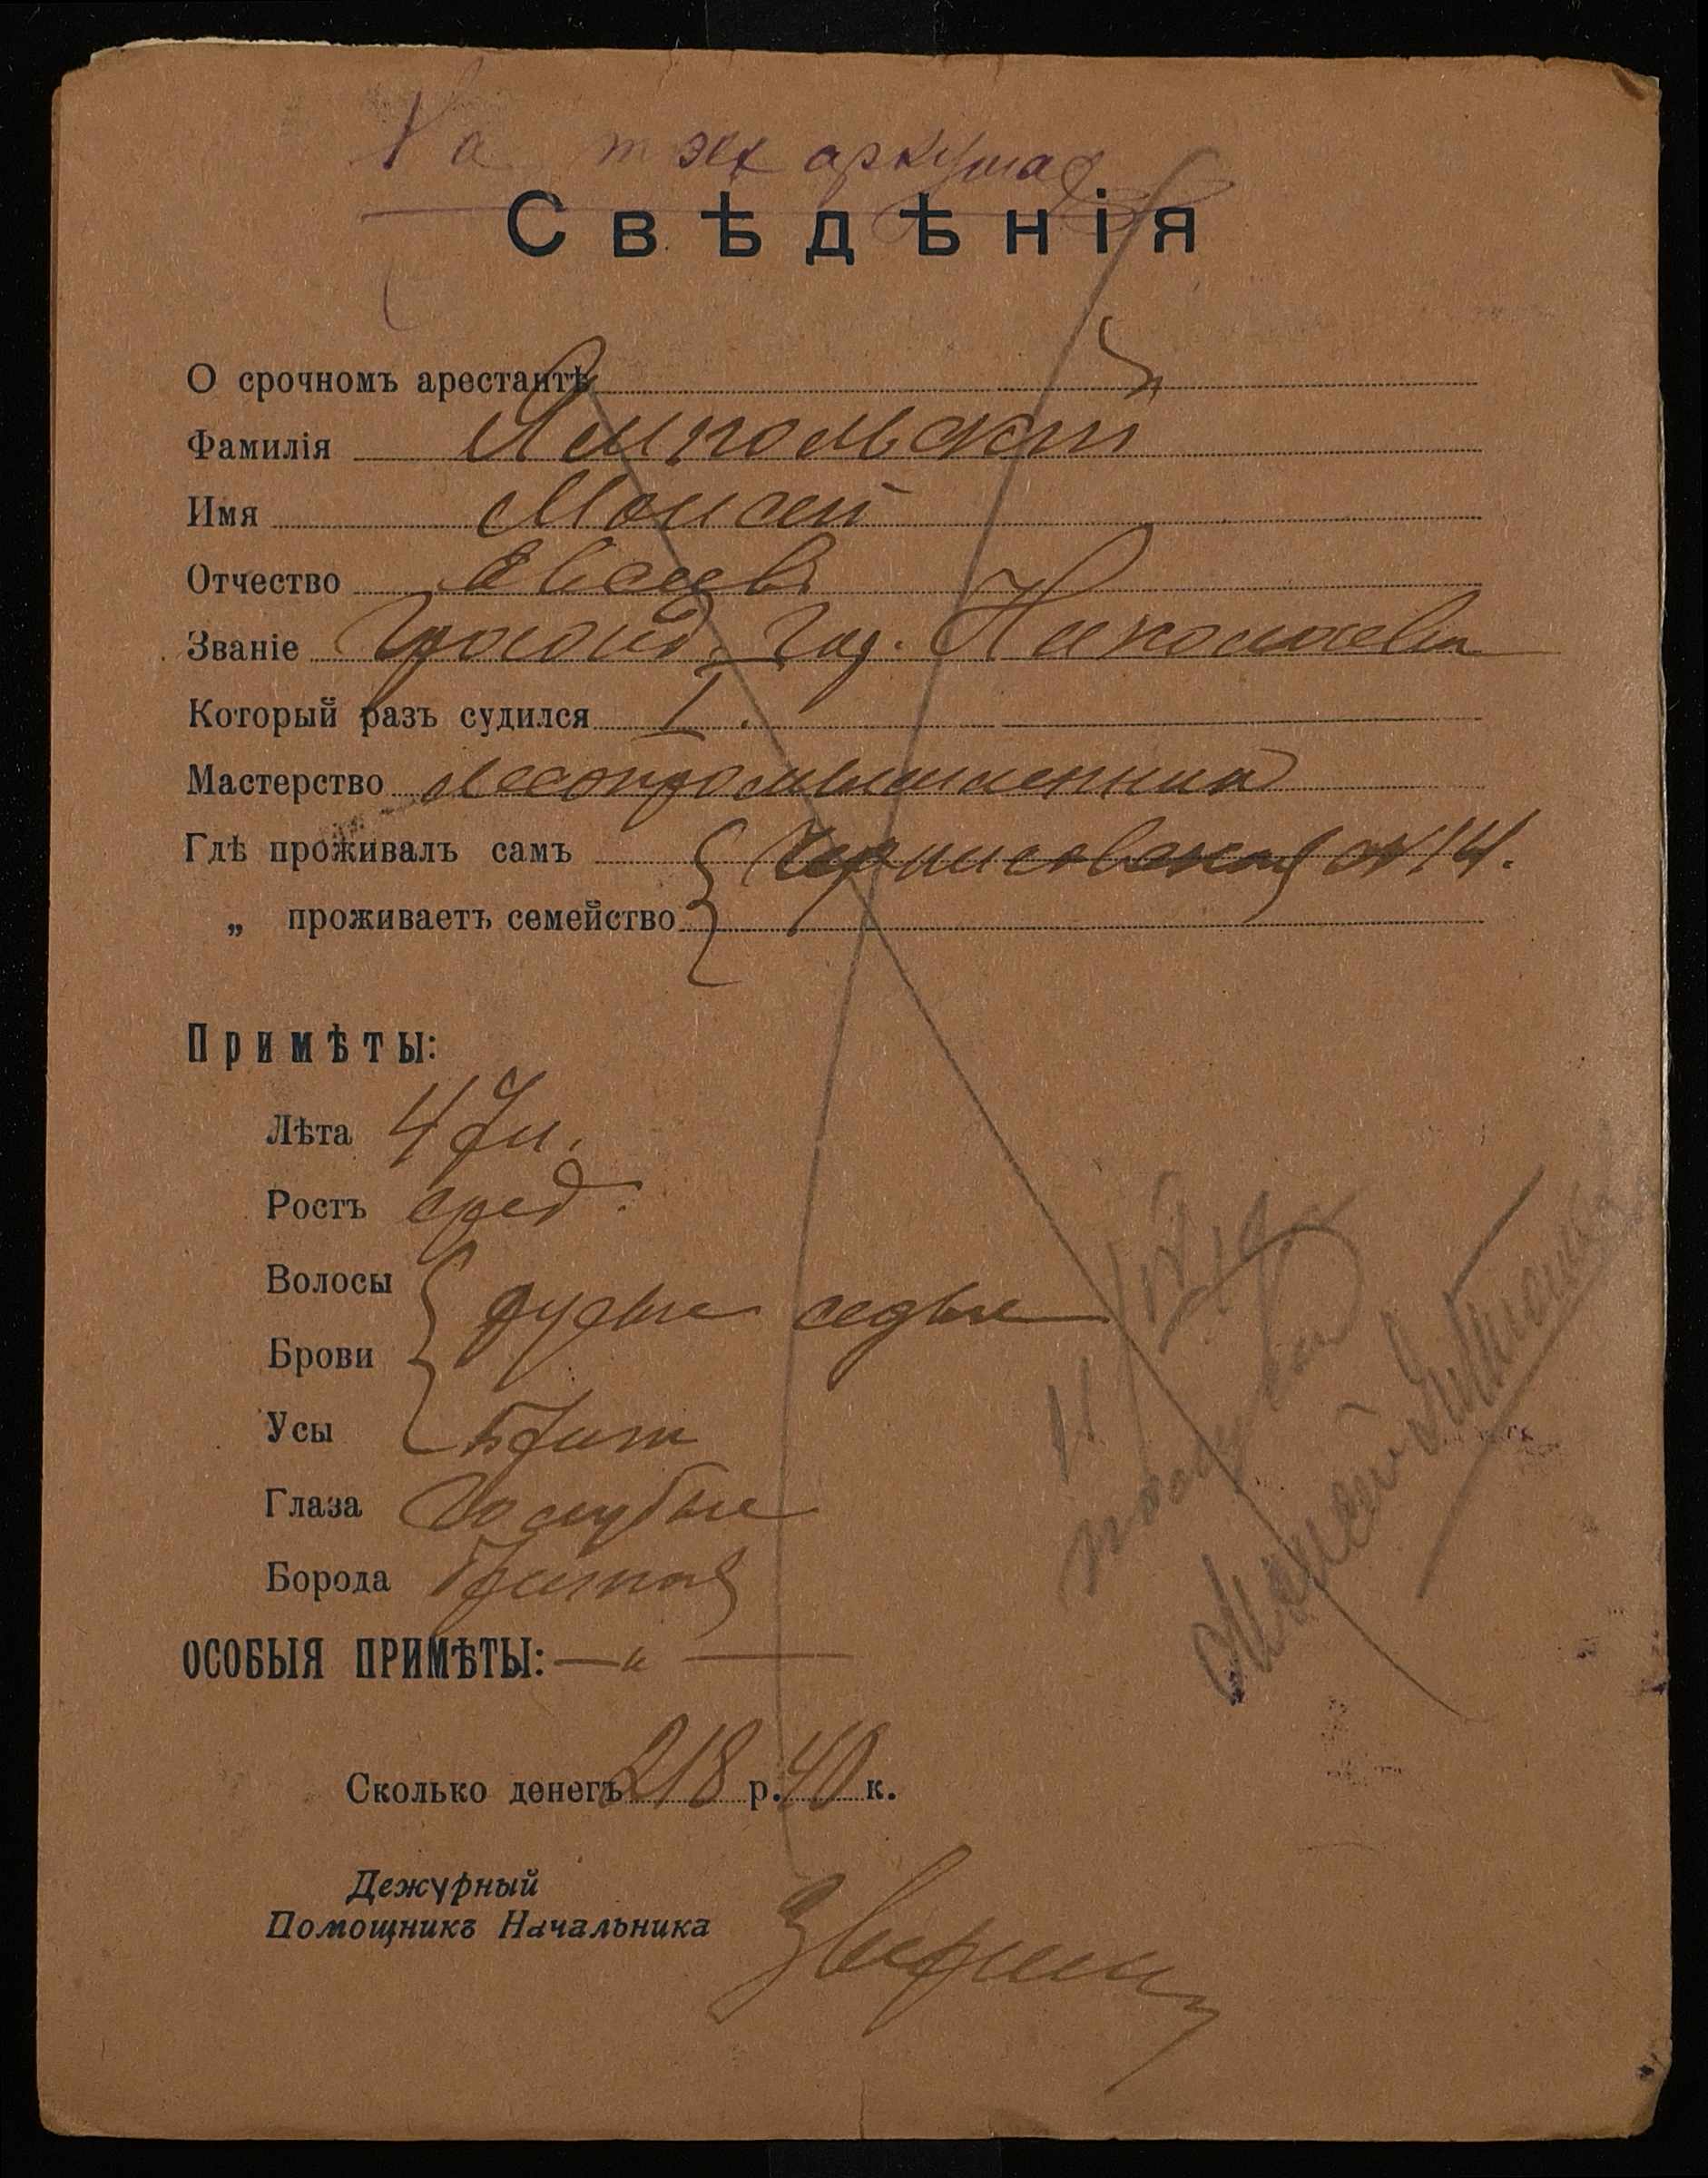 На трех аркушах
Свѣдѣнія
О срочномъ арестантѣ
Фамилія Ямпольский
Имя Моисей
Отчество Евсеев
Званіе Гражд. гор. Николаева
Который разъ судился I.
Мастерство лесопромышленник
Гдѣ проживалъ самъ
№ 14.
„ проживаетъ семейство
Примѣты:
Лѣта 47 л.
Ростъ сред.
Волосы русые седые
Брови
Усы брит
Глаза голубые
Борода бритая
ОСОБЫЯ ПРИМѢТЫ: — „ —
Сколько денегъ 218 р. 40 к.
Дежурный
Помощникъ Начальника
11/IV 19
Моисей